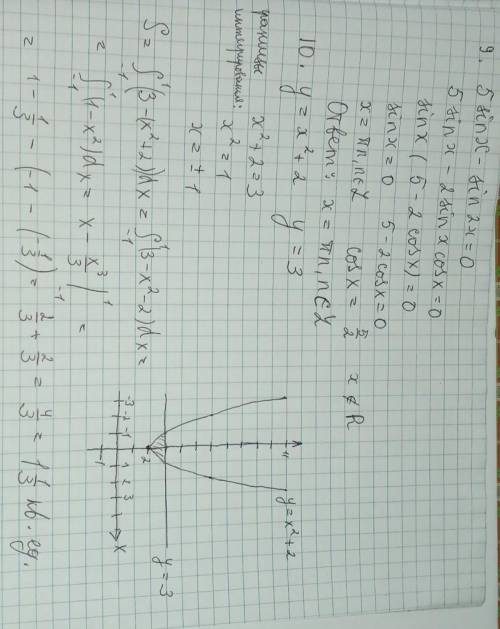 9. 5 sin x - sin 2x = 0
5 sin x - 2 sin x cos x = 0
sin x (5 - 2 cos x) = 0
sin x = 0    5 - 2 cos x = 0
x = πn, n ∈ Z    cos x = 5/2    x ∉ R
Ответ: x = πn, n ∈ Z
10. y = x² + 2    y = 3
границы
интегрирования:
x² + 2 = 3
x² = 1
x = ± 1
S = ∫₋₁¹ (3 - (x² + 2)) dx = ∫₋₁¹ (3 - x² - 2) dx =
= ∫₋₁¹ (1 - x²) dx = x - x³/3 |₋₁¹ =
= 1 - 1/3 - (-1 - (-1/3)) = 2/3 + 2/3 = 4/3 = 1 1/3 кв. ед.
y = x² + 2
y = 3
2
-3 -2 -1 1 2 3
x
-1